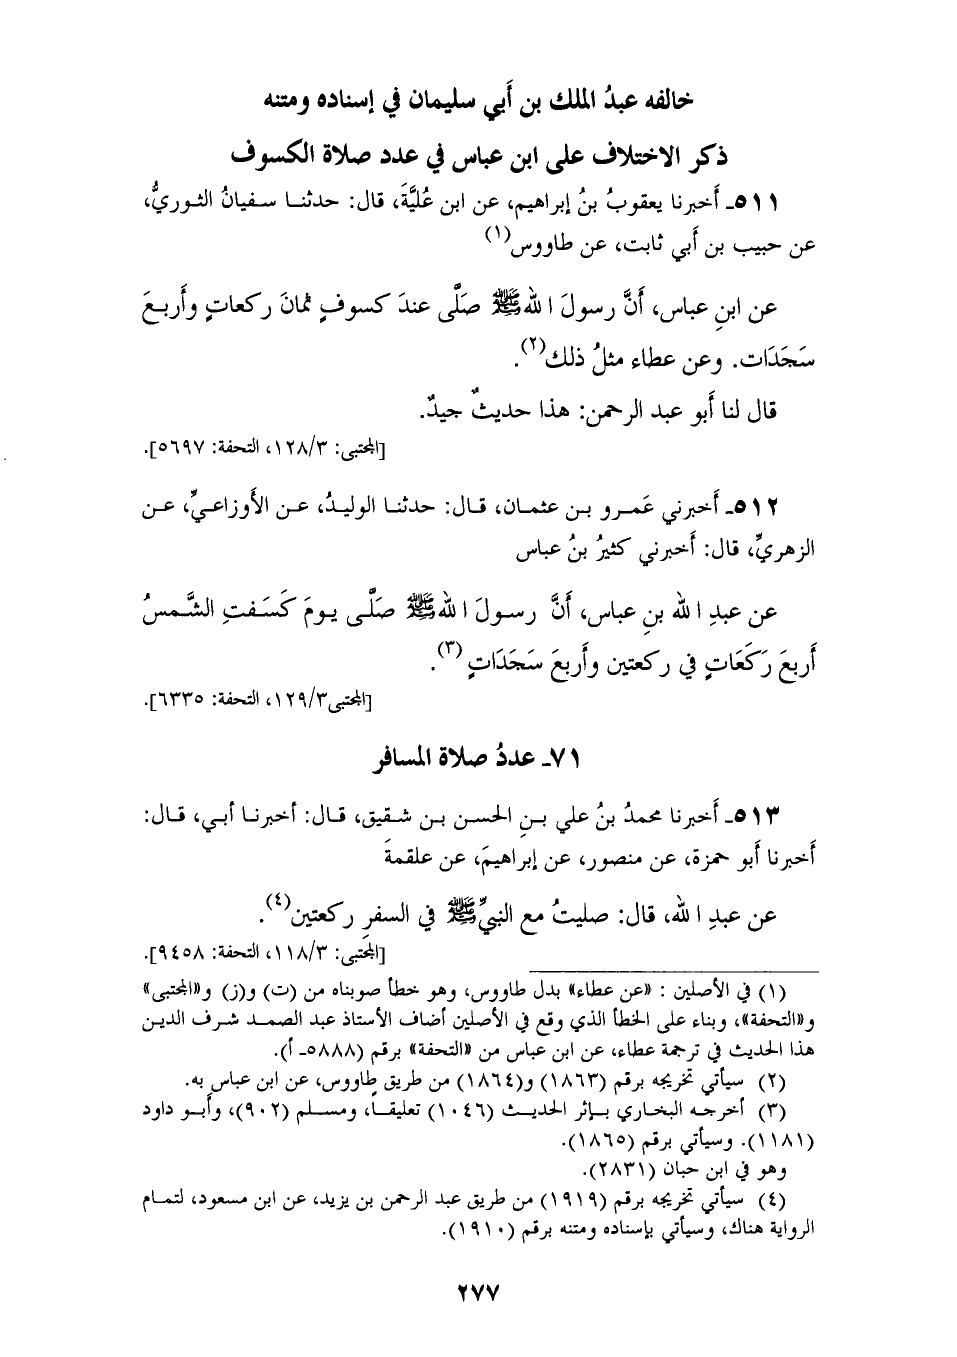 خالفه عبدُ الملك بن أَبي سليمان في إسناده ومتنه
ذكر الاختلاف على ابن عباس في عدد صلاة الكسوف
٥١١ـ أَخبرنا يعقوبُ بنُ إبراهيم، عن ابن عُليَّةَ، قال: حدثنا سفيانُ الثوريُّ،
عن حبيب بن أَبي ثابت، عن طاووس(١)
عن ابنِ عباس، أَنَّ رسولَ اللهﷺ صَلَّى عندَ كسوفٍ ثمانَ ركعاتٍ وأَربعَ
سَجَدَات. وعن عطاء مثلُ ذلك(٢).
قال لنا أَبو عبد الرحمن: هذا حديثٌ جيدٌ.
[المجتبى: ١٢٨/٣، التحفة: ٥٦٩٧].
٥١٢ـ أَخبرني عَمرو بن عثمان، قال: حدثنا الوليدُ، عن الأَوزاعيِّ، عن
الزهريِّ، قال: أَخبرني كثيرُ بنُ عباس
عن عبدِ الله بنِ عباس، أَنَّ رسولَ اللهﷺ صَلَّى يومَ كَسَفتِ الشَّمسُ
أَربعَ رَكَعَاتٍ في ركعتين وأَربعَ سَجَدَاتٍ(٣).
[المجتبى١٢٩/٣، التحفة: ٦٣٣٥].
٧١ـ عددُ صلاة المسافر
٥١٣ـ أَخبرنا محمدُ بنُ علي بنِ الحسن بن شقيق، قال: أخبرنا أبي، قال:
أَخبرنا أَبو حمزة، عن منصور، عن إبراهيمَ، عن علقمةَ
عن عبدِ الله، قال: صليتُ مع النبيِّﷺ في السفرِ ركعتين(٤).
[المجتبى: ١١٨/٣، التحفة: ٩٤٥٨].
(١) في الأصلين : «عن عطاء» بدل طاووس، وهو خطأ صوبناه من (ت) و(ز) و«المجتبى»
و«التحفة»، وبناء على الخطأ الذي وقع في الأصلين أضاف الأستاذ عبد الصمد شرف الدين
هذا الحديث في ترجمة عطاء، عن ابن عباس من «التحفة» برقم (٥٨٨٨ـ أ).
(٢) سيأتي تخريجه برقم (١٨٦٣) و(١٨٦٤) من طريق طاووس، عن ابن عباس به.
(٣) أخرجه البخاري بإثر الحديث (١٠٤٦) تعليقاً، ومسلم (٩٠٢)، وأبو داود
(١١٨١). وسيأتي برقم (١٨٦٥).
وهو في ابن حبان (٢٨٣١).
(٤) سيأتي تخريجه برقم (١٩١٩) من طريق عبد الرحمن بن يزيد، عن ابن مسعود، لتمام
الرواية هناك، وسيأتي بإسناده ومتنه برقم (١٩١٠).
٢٧٧